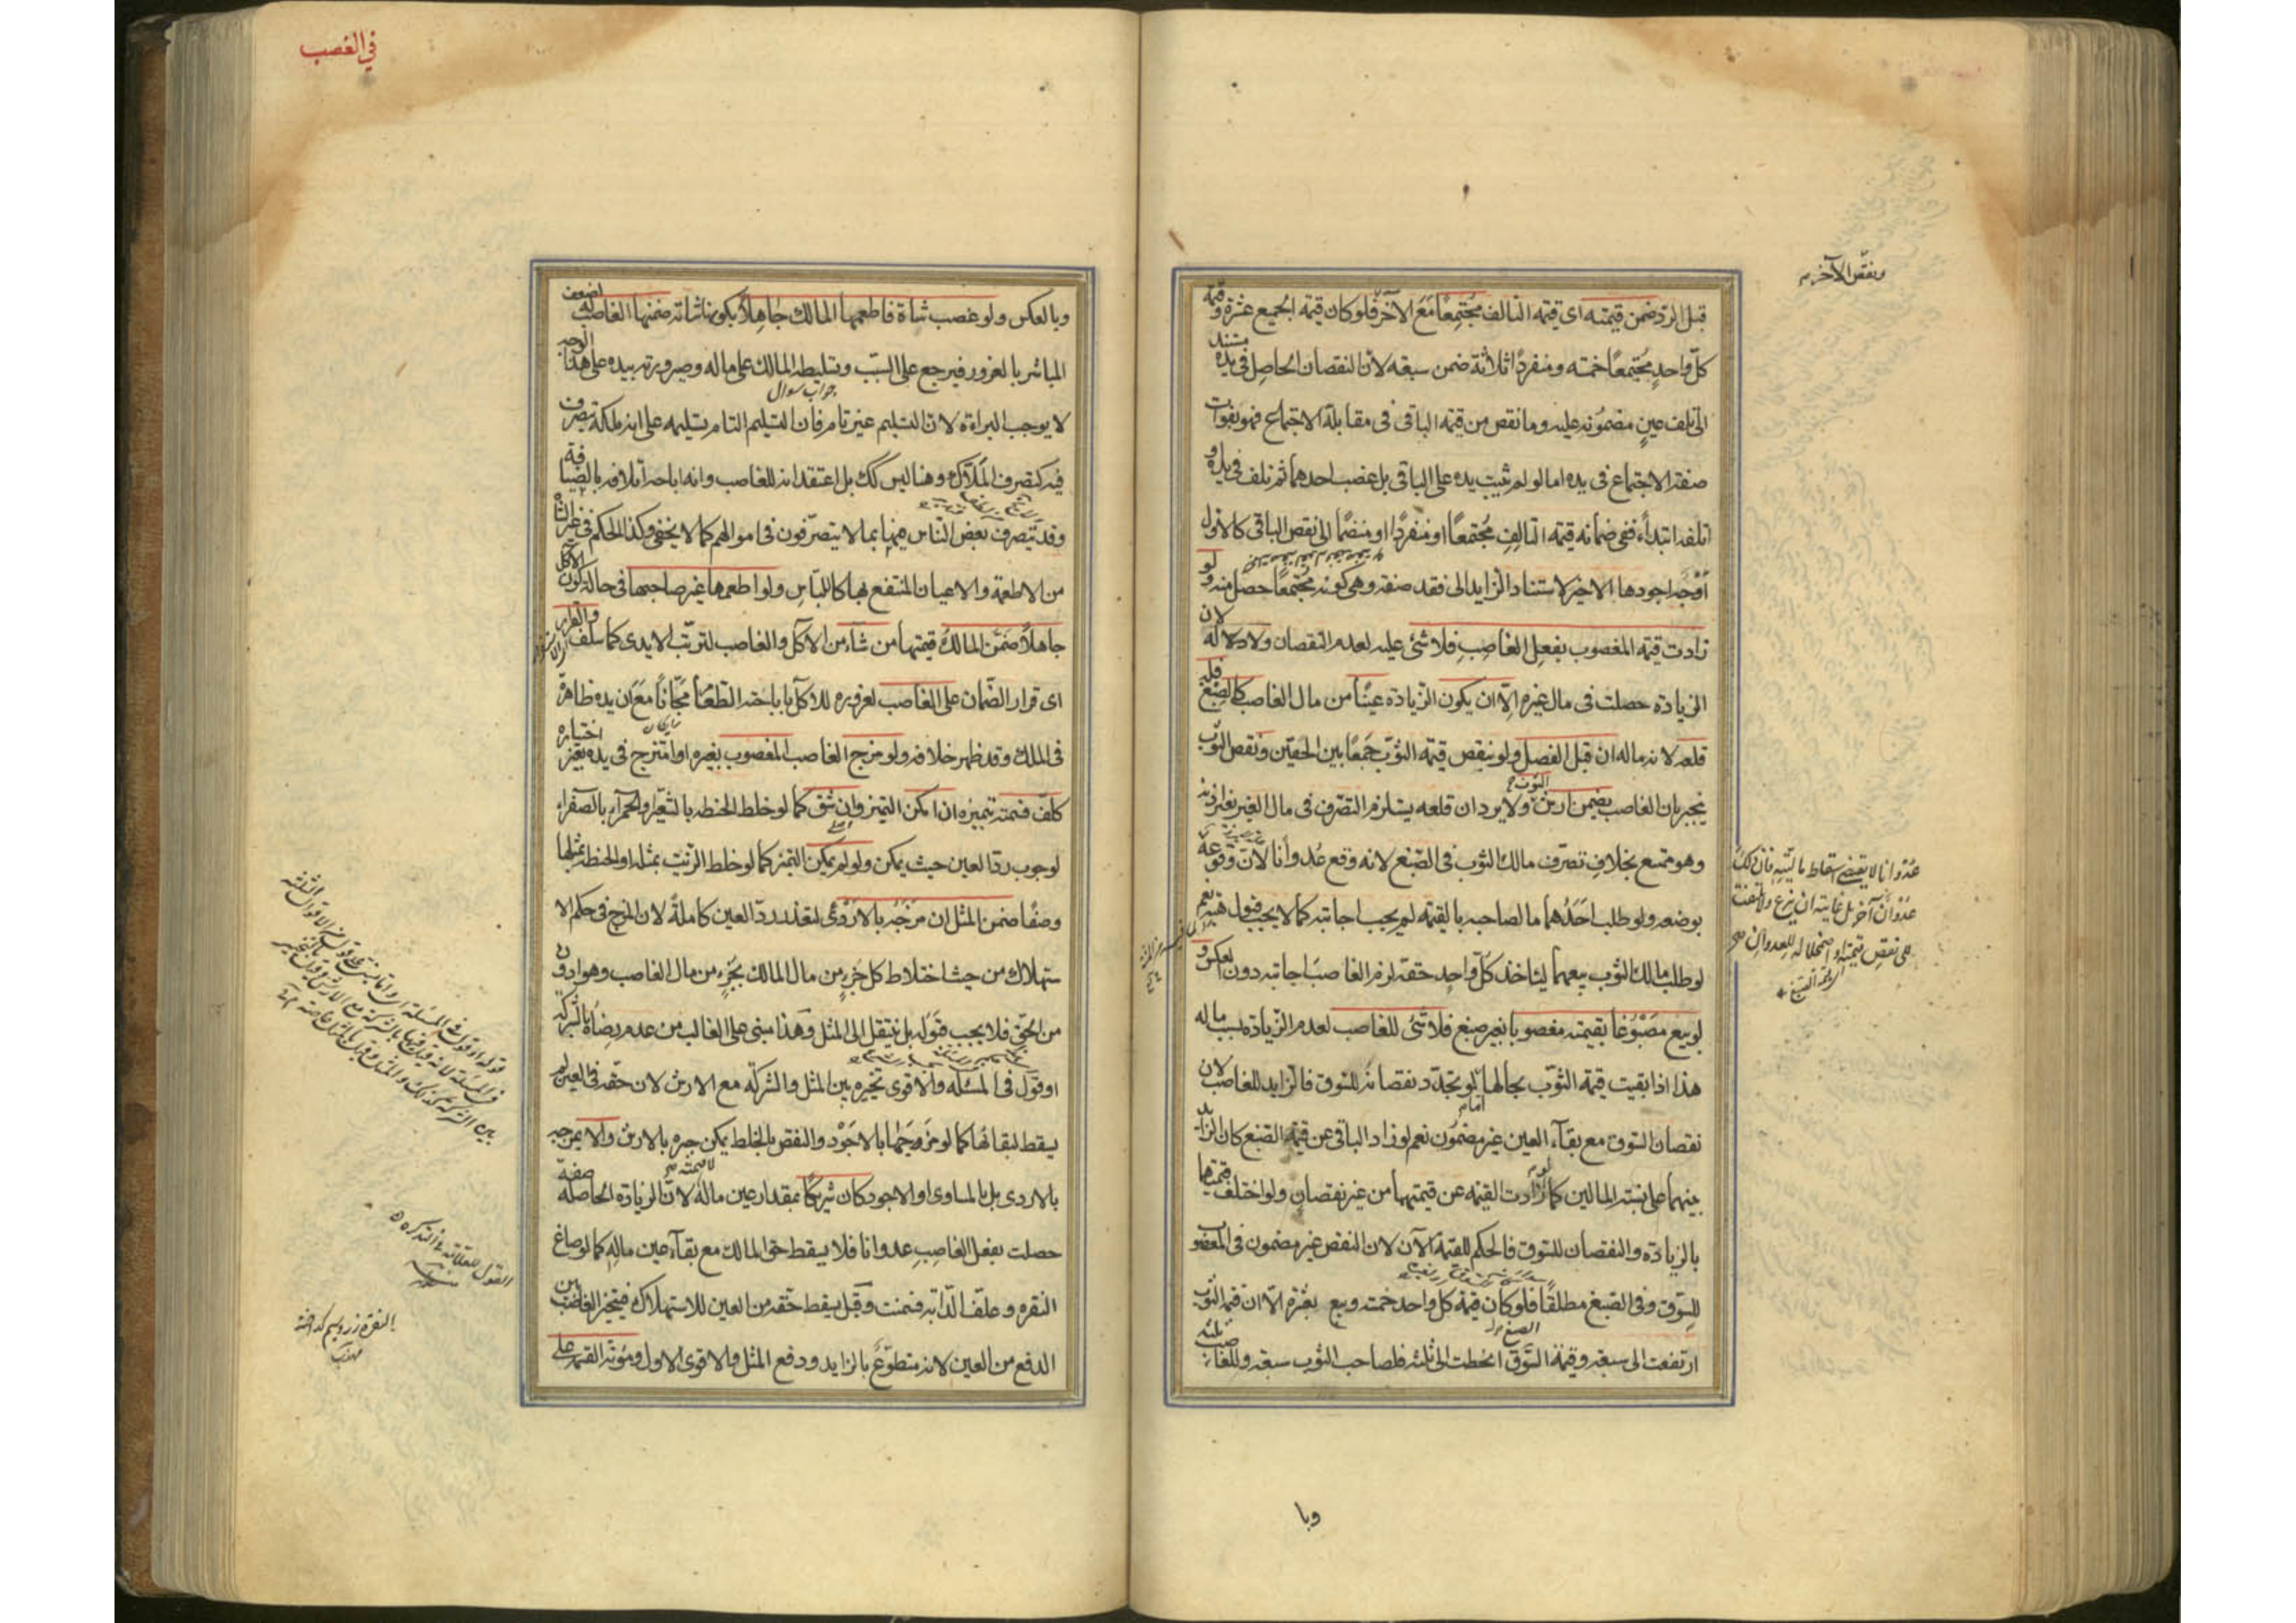 ونقص الآخر م
قبل الرد ضمن قيمته اى قيمة التالف مجتمعًا مَعَ الآخر فلو كان قيمة الجميع عشرة وقيمة
كلّ واحدٍ مجتمعًا خمسة ومنفردًا ثلاثة ضمن سبعة لأن النقصان الحاصل فى يده مستند
الى تلف عينٍ مضمونة عليه وما نقص من قيمة الباقى فى مقابلة الاجتماع فهو بفوات
صفة الاجتماع فى يده اما لو لم تثبت يده على الباقى بل غصب احدهما ثم تلف فى يده او
اتلفه ابتداءً ففى ضمانه قيمة التالفِ مجتمعًا او منفردًا او منضمًا الى نقص الباقى كالاول
اَوْجَه اجودها الاخير لاستناد الزايد الى فقد صفة وهى كونه مجتمعًا حصل منه ولو
زادت قيمة المغصوب بفعل الغاصِبِ فلا شئ عليه لعدم النقصان ولا له لان
الزيادة حصلت فى مال غيره اِلّا ان يكون الزيادة عينًا من مال الغاصب كالصبغ فله
قلعه لانه ماله ان قبل الفصل ولو بنقص قيمة الثوب جَمعًا بين الحقين ونقص الثوب
ينجبر بان الغاصب يضمن ارش الثوب ولا يرد ان قلعه يستلزم التصرف فى مال الغير بغير اذنه
وهو ممتنع بخلافِ تصرف مالك الثوب فى الصّبغ لانه وقع عُدوانًا لانّ وقوعه
عُدْوانًا لا يقتضى اسقاط ماليّته فان ذلك
عدوان آخر بل غايته ان ينزع ولا يلتفت
الى نقص قيمته او اضمحلاله للعدوان صح
بوضعه ولو طلب احَدُهما ما لصاحبه بالقيمة لم يجب اجابته كما لا يجب قبول هبته نعم
لو طلب مالك الثوب بيعهما ليأخذ كلّ واحدٍ حقه لزم الغاصبَ اجابته دون العكس و
لو بيع مصبُوغًا بقيمته مغصوبا بغير صبغ فلا شئ للغاصب لعدم الزيادة بسبب ماله
هذا اذا بقيت قيمة الثوب بحالها امّا لو تجدّد نقصانه للسّوق فالزايد للغاصب لان
نقصان السّوق مع بقآء العين غير مضمُون نعم لو زاد الباقى عن قيمة الصّبغ كان الزايد
بينهما على نسبة المالين كما لو زادت القيمة عن قيمتهما من غير نقصانٍ ولو اختلف قيمتهما
بالزيادة والنقصان للسّوق فالحكم للقيمة الآن لان النقص غير مضمون فى المغصوب
للسِوق وفى الصّبغ مطلقًا فلو كان قيمة كل واحد خمسة وبيع بعشرة الّا ان قيمة الثوب
ارتفعت الى سبعة وقيمة الصبغ انحطت الى ثلثة فلصاحب الثوب سبعة وللغاصب ثلثة
وبا
في الغصب
وبالعكس ولو غصب شاة فاطعمها المالك جاهلًا بكونها شاته ضمنها الغاصب له لضعف
المباشر بالغرور فيرجع على السّبب وتسليطه المالك على ماله وصيرورته بيده على هذا الوجه
جواب سوال
لا يوجب البراءة لان التسليم غير تام فان التسليم التام تسليمه على انه ملكه يتصرف
فيه كتصرف المَلّاك وهنا ليس كك بل اعتقد انه للغاصب وانه اباحه اتلافه بالضيافة
وقد يتصرف بعض النّاس فيها بما لا يتصرّفون فى اموالهم كما لا يخفى وكذا الحكم فى غير الشاة
من الاطعمة والاعيان المنتفع بها كاللباسِ ولو اطعمها غير صاحبها فى حالة كون الآكل
جاهلًا ضمّن المالكُ قيمتها من شآء من الآكل والغاصب لترتّب الايدى كما سلف والقرار
اى قرار الضّمان على الغاصب لغروره للآكل باباحته الطّعام مجّانًا مَعَ ان يده ظاهرة
فى الملك وقد ظهر خلافه ولو مزج الغاصب المغصوب بغيره او امتزج فى يده بغير اختياره
كلّف قسمته بتميزه ان امكن التميز وان شقّ كما لو خلط الحنطه بالشعير او الحمرآء بالصفراء
لوجوب ردّ العين حيث يمكن ولو لم يمكن التميز كما لو خلط الزّيت بمثله او الحنطة بمثلها
وصفًا ضمن المثل ان مَزَجَهُ بالاَرْدَى لتعذر ردّ العين كاملةً لان المزج فى حكم الا
ستهلاك من حيث اختلاط كل جزءٍ من مال المالك بجزءٍ من مال الغاصب وهو ادون
من الحقّ فلا يجب قبوله بل ينتقل الى المثل وَهذا مبنى على الغالب من عدم رضاه بالشركة
او قول فى المسئله والاقوى تخيره بين المثل والشركة مع الارش لان حقه فى العين لم
يسقط لبقائها كما لو مزجها بالاجَوْد والنقص بالخلط يمكن جبره بالارش والا يمزجه
بالاردى بل بالمساوى او الاجود كان شريكًا بمقدار عين ماله لا قيمته لانّ الزيادة الحاصلة صفة
حصلت بفعل الغاصِبِ عدوانا فلا يسقط حق المالك مع بقآء عين مالِه كما لو صاغ
النقره وعلف الدّابّة فسمنت وقيل يسقط حقّه من العين للاستهلاك فيتخير الغاصب بين
الدفع من العين لانه متطوّعٌ بالزايد ودفع المثل والاقوى الاول ومؤنة القسمة على
القول للعلامة فى التذكره
النقرة زر وسيم گداخته